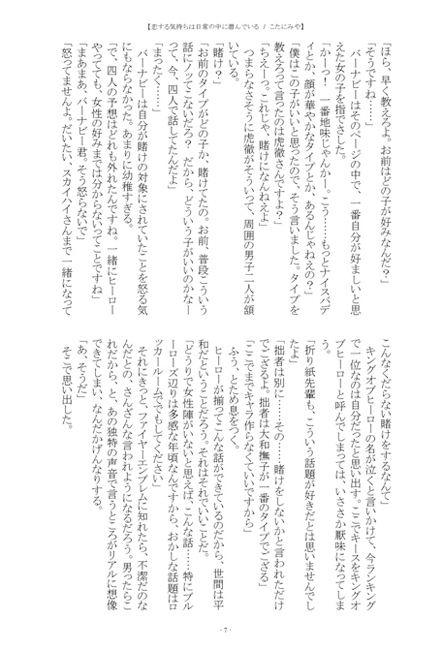 【恋する気持ちは日常の中に潜んでいる / こたにみや】
「ほら、早く教えろよ。お前はどの子が好みなんだ？」
「そうですね……」
　バーナビーはそのページの中で、一番自分が好ましいと思
えた女の子を指でさした。
「かーっ！　一番地味じゃんかー。こう……もっとナイスバデ
ィとか、顔が華やかなタイプとか、あるんじゃねえの？」
「僕はこの子がいいと思ったので、そう言いました。タイプを
教えろって言ったのは虎徹さんですよ？」
「ちえーっ。これじゃ、賭けになんねえよ」
　つまらなさそうに虎徹がそういって、周囲の男子二人が頷
いている。
「賭け？」
「お前のタイプがどの子か、賭けてたの。お前、普段こういう
話にノッてこないだろ？　だから、どういう子がいいのかなー
って、今、四人で話してたんだよ」
「まったく……」
　バーナビーは自分が賭けの対象にされていたことを怒る気
にもならなかった。あまりに幼稚すぎる。
「で、四人の予想はどれも外れたんですね。一緒にヒーロー
やってても、女性の好みまでは分からないってことですね」
「まあまあ、バーナビー君。そう怒らないで」
「怒ってませんよ。だいたい、スカイハイさんまで一緒になって
こんなくだらない賭けをするなんて」
　キングオブヒーローの名が泣くと言いかけて、今ランキング
で一位なのは自分だったと思い出す。ここでキースをキングオ
ブヒーローと呼んでしまっては、いささか厭味になってしま
う。
「折り紙先輩も、こういう話題が好きだとは思いませんでし
たよ」
「拙者は別に……その……賭けをしないかと言われただけ
でござるよ。拙者は大和撫子が一番のタイプでござる」
「ここまでキャラ作らなくていいですから」
　ふう、とため息をつく。
　ヒーローが揃ってこんな話ができているのだから、世間は平
和だということだろう。それはそれでいいことだ。
「どうりで女性陣がいないと思えば、こんな話……特にブル
ーローズ辺りは多感な年頃なんですから、おかしな話題はロ
ッカールームででもしてください」
　それにきっと、ファイヤーエンブレムに知れたら、不潔だのな
んだとの、さんざんな言われようになるだろう。男ったらこ
れだから、と、あの独特の声音で言うところがリアルに想像
できてしまい、なんだかげんなりする。
「あ、そうだ」
　そこで思い出した。
- 7 -